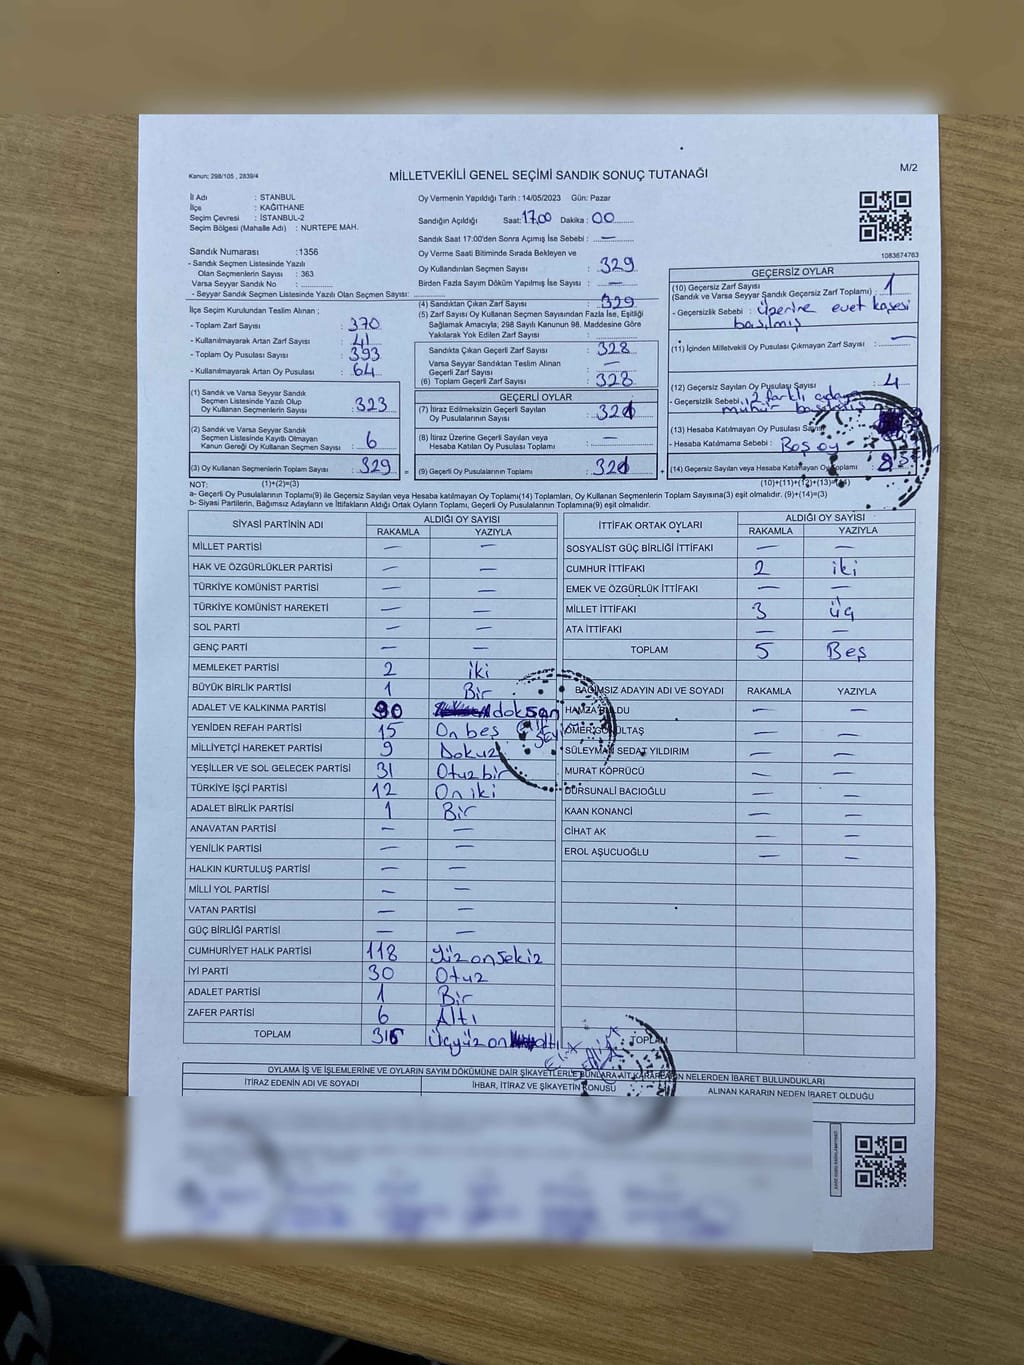 Kanun; 298/105 , 2839/4
MİLLETVEKİLİ GENEL SEÇİMİ SANDIK SONUÇ TUTANAĞI
M/2
İl Adı : STANBUL
İlçe : KAĞITHANE
Seçim Çevresi : İSTANBUL-2
Seçim Bölgesi (Mahalle Adı) : NURTEPE MAH.
Sandık Numarası :1356
- Sandık Seçmen Listesinde Yazılı
Olan Seçmenlerin Sayısı : 363
Varsa Seyyar Sandık No :
- Seyyar Sandık Seçmen Listesinde Yazılı Olan Seçmen Sayısı:
İlçe Seçim Kurulundan Teslim Alınan ;
- Toplam Zarf Sayısı : 370
- Kullanılmayarak Artan Zarf Sayısı : 41
- Toplam Oy Pusulası Sayısı : 393
- Kullanılmayarak Artan Oy Pusulası : 64
(1) Sandık ve Varsa Seyyar Sandık
Seçmen Listesinde Yazılı Olup
Oy Kullanan Seçmenlerin Sayısı : 323
(2) Sandık ve Varsa Seyyar Sandık
Seçmen Listesinde Kayıtlı Olmayan
Kanun Gereği Oy Kullanan Seçmen Sayısı : 6
(3) Oy Kullanan Seçmenlerin Toplam Sayısı : 329 =
Oy Vermenin Yapıldığı Tarih : 14/05/2023 Gün: Pazar
Sandığın Açıldığı Saat: 17.00 Dakika : 00
Sandık Saat 17:00'den Sonra Açımış İse Sebebi : —
Oy Verme Saati Bitiminde Sırada Bekleyen ve
Oy Kullandırılan Seçmen Sayısı : 329
Birden Fazla Sayım Döküm Yapılmış İse Sayısı : —
(4) Sandıktan Çıkan Zarf Sayısı : 329
(5) Zarf Sayısı Oy Kullanan Seçmen Sayısından Fazla İse, Eşitliği
Sağlamak Amacıyla; 298 Sayılı Kanunun 98. Maddesine Göre
Yakılarak Yok Edilen Zarf Sayısı :
Sandıkta Çıkan Geçerli Zarf Sayısı : 328
Varsa Seyyar Sandıktan Teslim Alınan
Geçerli Zarf Sayısı : —
(6) Toplam Geçerli Zarf Sayısı : 328
GEÇERLİ OYLAR
(7) İtiraz Edilmeksizin Geçerli Sayılan
Oy Pusulalarının Sayısı : 321
(8) İtiraz Üzerine Geçerli Sayılan veya
Hesaba Katılan Oy Pusulası Toplamı : —
(9) Geçerli Oy Pusulalarının Toplamı : 321 +
1083674763
GEÇERSİZ OYLAR
(10) Geçersiz Zarf Sayısı
(Sandık ve Varsa Seyyar Sandık Geçersiz Zarf Toplamı) : 1
- Geçersizlik Sebebi : üzerine evet kaşesi
basılmış
(11) İçinden Milletvekili Oy Pusulası Çıkmayan Zarf Sayısı : —
(12) Geçersiz Sayılan Oy Pusulası Sayısı : 4
- Geçersizlik Sebebi : 2 farklı adaya
mühür basılmış
(13) Hesaba Katılmayan Oy Pusulası Sayısı
- Hesaba Katılmama Sebebi : Boş oy
(14) Geçersiz Sayılan veya Hesaba Katılmayan Oy Toplamı : 8
NOT: (1)+(2)=(3) (10)+(11)+(12)+(13)=(14)
a- Geçerli Oy Pusulalarının Toplamı(9) ile Geçersiz Sayılan veya Hesaba katılmayan Oy Toplamı(14) Toplamları, Oy Kullanan Seçmenlerin Toplam Sayısına(3) eşit olmalıdır. (9)+(14)=(3)
b- Siyasi Partilerin, Bağımsız Adayların ve İttifakların Aldığı Ortak Oyların Toplamı, Geçerli Oy Pusulalarının Toplamına(9) eşit olmalıdır.
SİYASİ PARTİNİN ADI ALDIĞI OY SAYISI
RAKAMLA YAZIYLA
MİLLET PARTİSİ — —
HAK VE ÖZGÜRLÜKLER PARTİSİ — —
TÜRKİYE KOMÜNİST PARTİSİ — —
TÜRKİYE KOMÜNİST HAREKETİ — —
SOL PARTİ — —
GENÇ PARTİ — —
MEMLEKET PARTİSİ 2 iki
BÜYÜK BİRLİK PARTİSİ 1 Bir
ADALET VE KALKINMA PARTİSİ 90 doksan
YENİDEN REFAH PARTİSİ 15 On beş
MİLLİYETÇİ HAREKET PARTİSİ 9 Dokuz
YEŞİLLER VE SOL GELECEK PARTİSİ 31 Otuzbir
TÜRKİYE İŞÇİ PARTİSİ 12 On iki
ADALET BİRLİK PARTİSİ 1 Bir
ANAVATAN PARTİSİ — —
YENİLİK PARTİSİ — —
HALKIN KURTULUŞ PARTİSİ — —
MİLLİ YOL PARTİSİ — —
VATAN PARTİSİ — —
GÜÇ BİRLİĞİ PARTİSİ — —
CUMHURİYET HALK PARTİSİ 118 Yüz onsekiz
İYİ PARTİ 30 Otuz
ADALET PARTİSİ 1 Bir
ZAFER PARTİSİ 6 Altı
TOPLAM 316 Üçyüz on altı
İTTİFAK ORTAK OYLARI ALDIĞI OY SAYISI
RAKAMLA YAZIYLA
SOSYALİST GÜÇ BİRLİĞİ İTTİFAKI — —
CUMHUR İTTİFAKI 2 iki
EMEK VE ÖZGÜRLÜK İTTİFAKI — —
MİLLET İTTİFAKI 3 üç
ATA İTTİFAKI — —
TOPLAM 5 Beş
BAĞIMSIZ ADAYIN ADI VE SOYADI RAKAMLA YAZIYLA
HAMZA — —
— —
SÜLEYMAN SEDAT YILDIRIM — —
MURAT KÖPRÜCÜ — —
DURSUNALİ BACIOĞLU — —
KAAN KONANCİ — —
CİHAT AK — —
EROL AŞUCUOĞLU — —
TOPLAM
OYLAMA İŞ VE İŞLEMLERİNE VE OYLARIN SAYIM DÖKÜMÜNE DAİR ŞİKAYETLERLE BUNLARA AİT KARARLARIN NELERDEN İBARET BULUNDUKLARI
İTİRAZ EDENİN ADI VE SOYADI İHBAR, İTİRAZ VE ŞİKAYETİN KONUSU ALINAN KARARIN NEDEN İBARET OLDUĞU